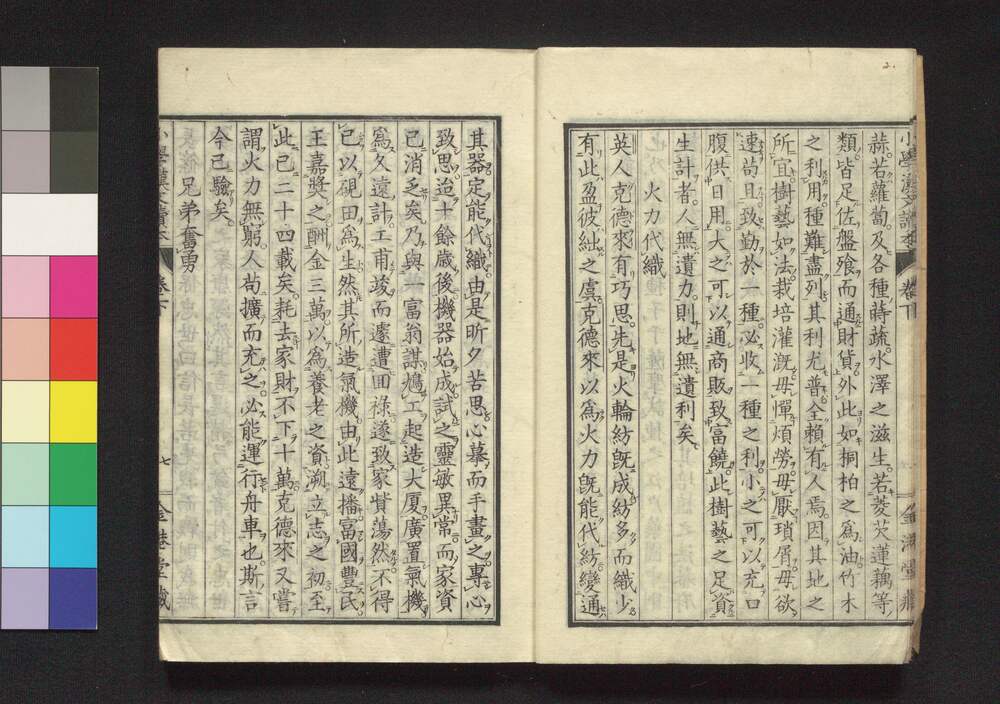 蒜若蘿蔔及各種蒔蔬水澤之滋生若菱芡蓮藕等
類皆足佐盤飱而通財貨外此如桐柏之爲油竹木
之利用種難盡列其利尤普全賴有人焉因其地之
所宜樹藝如法栽培灌漑毋憚煩勞毋厭瑣屑毋欲
速苟且致勤於一種必收一種之利小之可以充口
腹供日用大之可以通商販致富饒此樹藝之足資
生計者人無遺力則地無遺利矣
火力代織
英人克德來有巧思先是火輪紡旣成紡多而織少
有此盈彼絀之虞克德來以爲火力旣能代紡變通
其器定能代織由是昕夕苦思心摹而手畫之專心
致思造十餘歲後機器始成試之靈敏異常而家資
已消乏矣乃與一富翁謀尳工起造大厦廣置氣機
爲久遠計工甫竣而遽遭回祿遂致家貲蕩然不得
已以硯田爲生然其所造氣機由此遠播富國豐民
王嘉奬之酬金三萬以爲養老之資溯立志之初至
此已二十四載矣耗去家財不下十萬克德來又嘗
謂火力無窮人苟擴而充之必能運行舟車也斯言
今已驗矣
兄弟奮勇
小學漢文讀本
卷下
七
金港堂藏